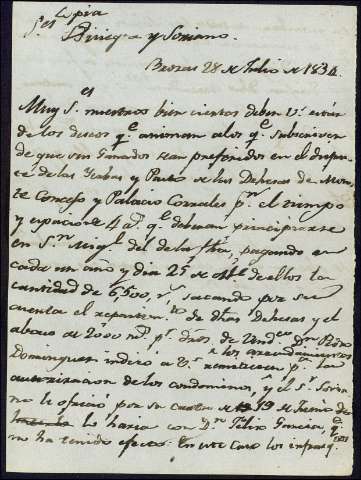 Copia
S.es Biniegra y Soriano.
Brozas 28 de Julio de 1834.
Muy S.es nuestros bien ciertos deben V.s estar
de los deseos q.e animan a los q.e subscriven
de que sus Ganados sean preferidos en el disfru-
te de las Yerbas y Pasto de las Dehesas de Mon-
te Concejo y Palacio Corrales p.r el tiempo
y espacio de 4 a.s q.e deberan principiarse
en S.n Mig.l del de la f.ha, pagando en
cada un año y dia 25 de de ellos la
cantidad de 6,500, r.s sacando por su
cuenta el repartim.to de d.has Dehesas y el
abono de 2000 r.s p.r d.ros de D.n Pedro
Dominguez indicó a V.s remitiesen p.a la
autorizacion de los condominos, y el S.r Soria-
no le ofició por su carta de 19 de Junio de
lo haria con D.n Felix Garcia, q.e
no ha tenido efecto. En este caso los infrasq.